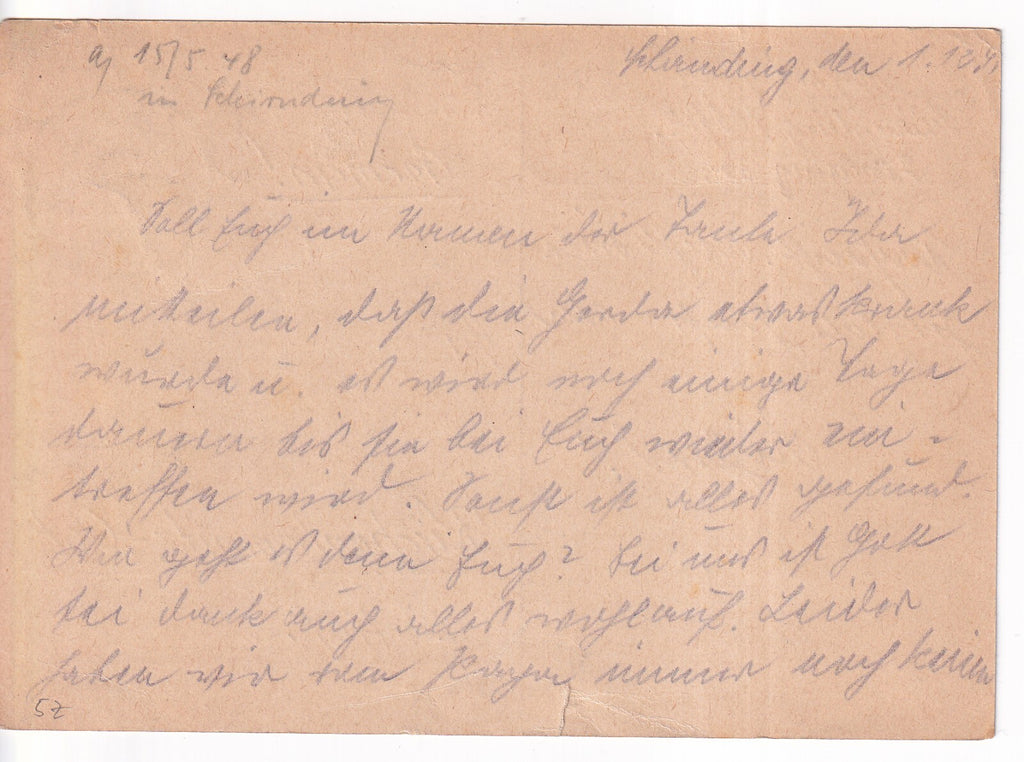 a/ 15/5 48
in Schirnding
Schirnding, den 1.12.4
Soll Euch im Namen der Tante Ida
mitteilen, daß die Gerda etwas krank
wurde u. es wird noch einige Tage
dauern bis sie bei Euch wieder ein-
treffen wird. Sonst ist alles gesund.
Wie geht es denn Euch? Bei uns ist Gott
sei dank auch alles wohlauf. Leider
haben wir vom immer noch keinen
5Z